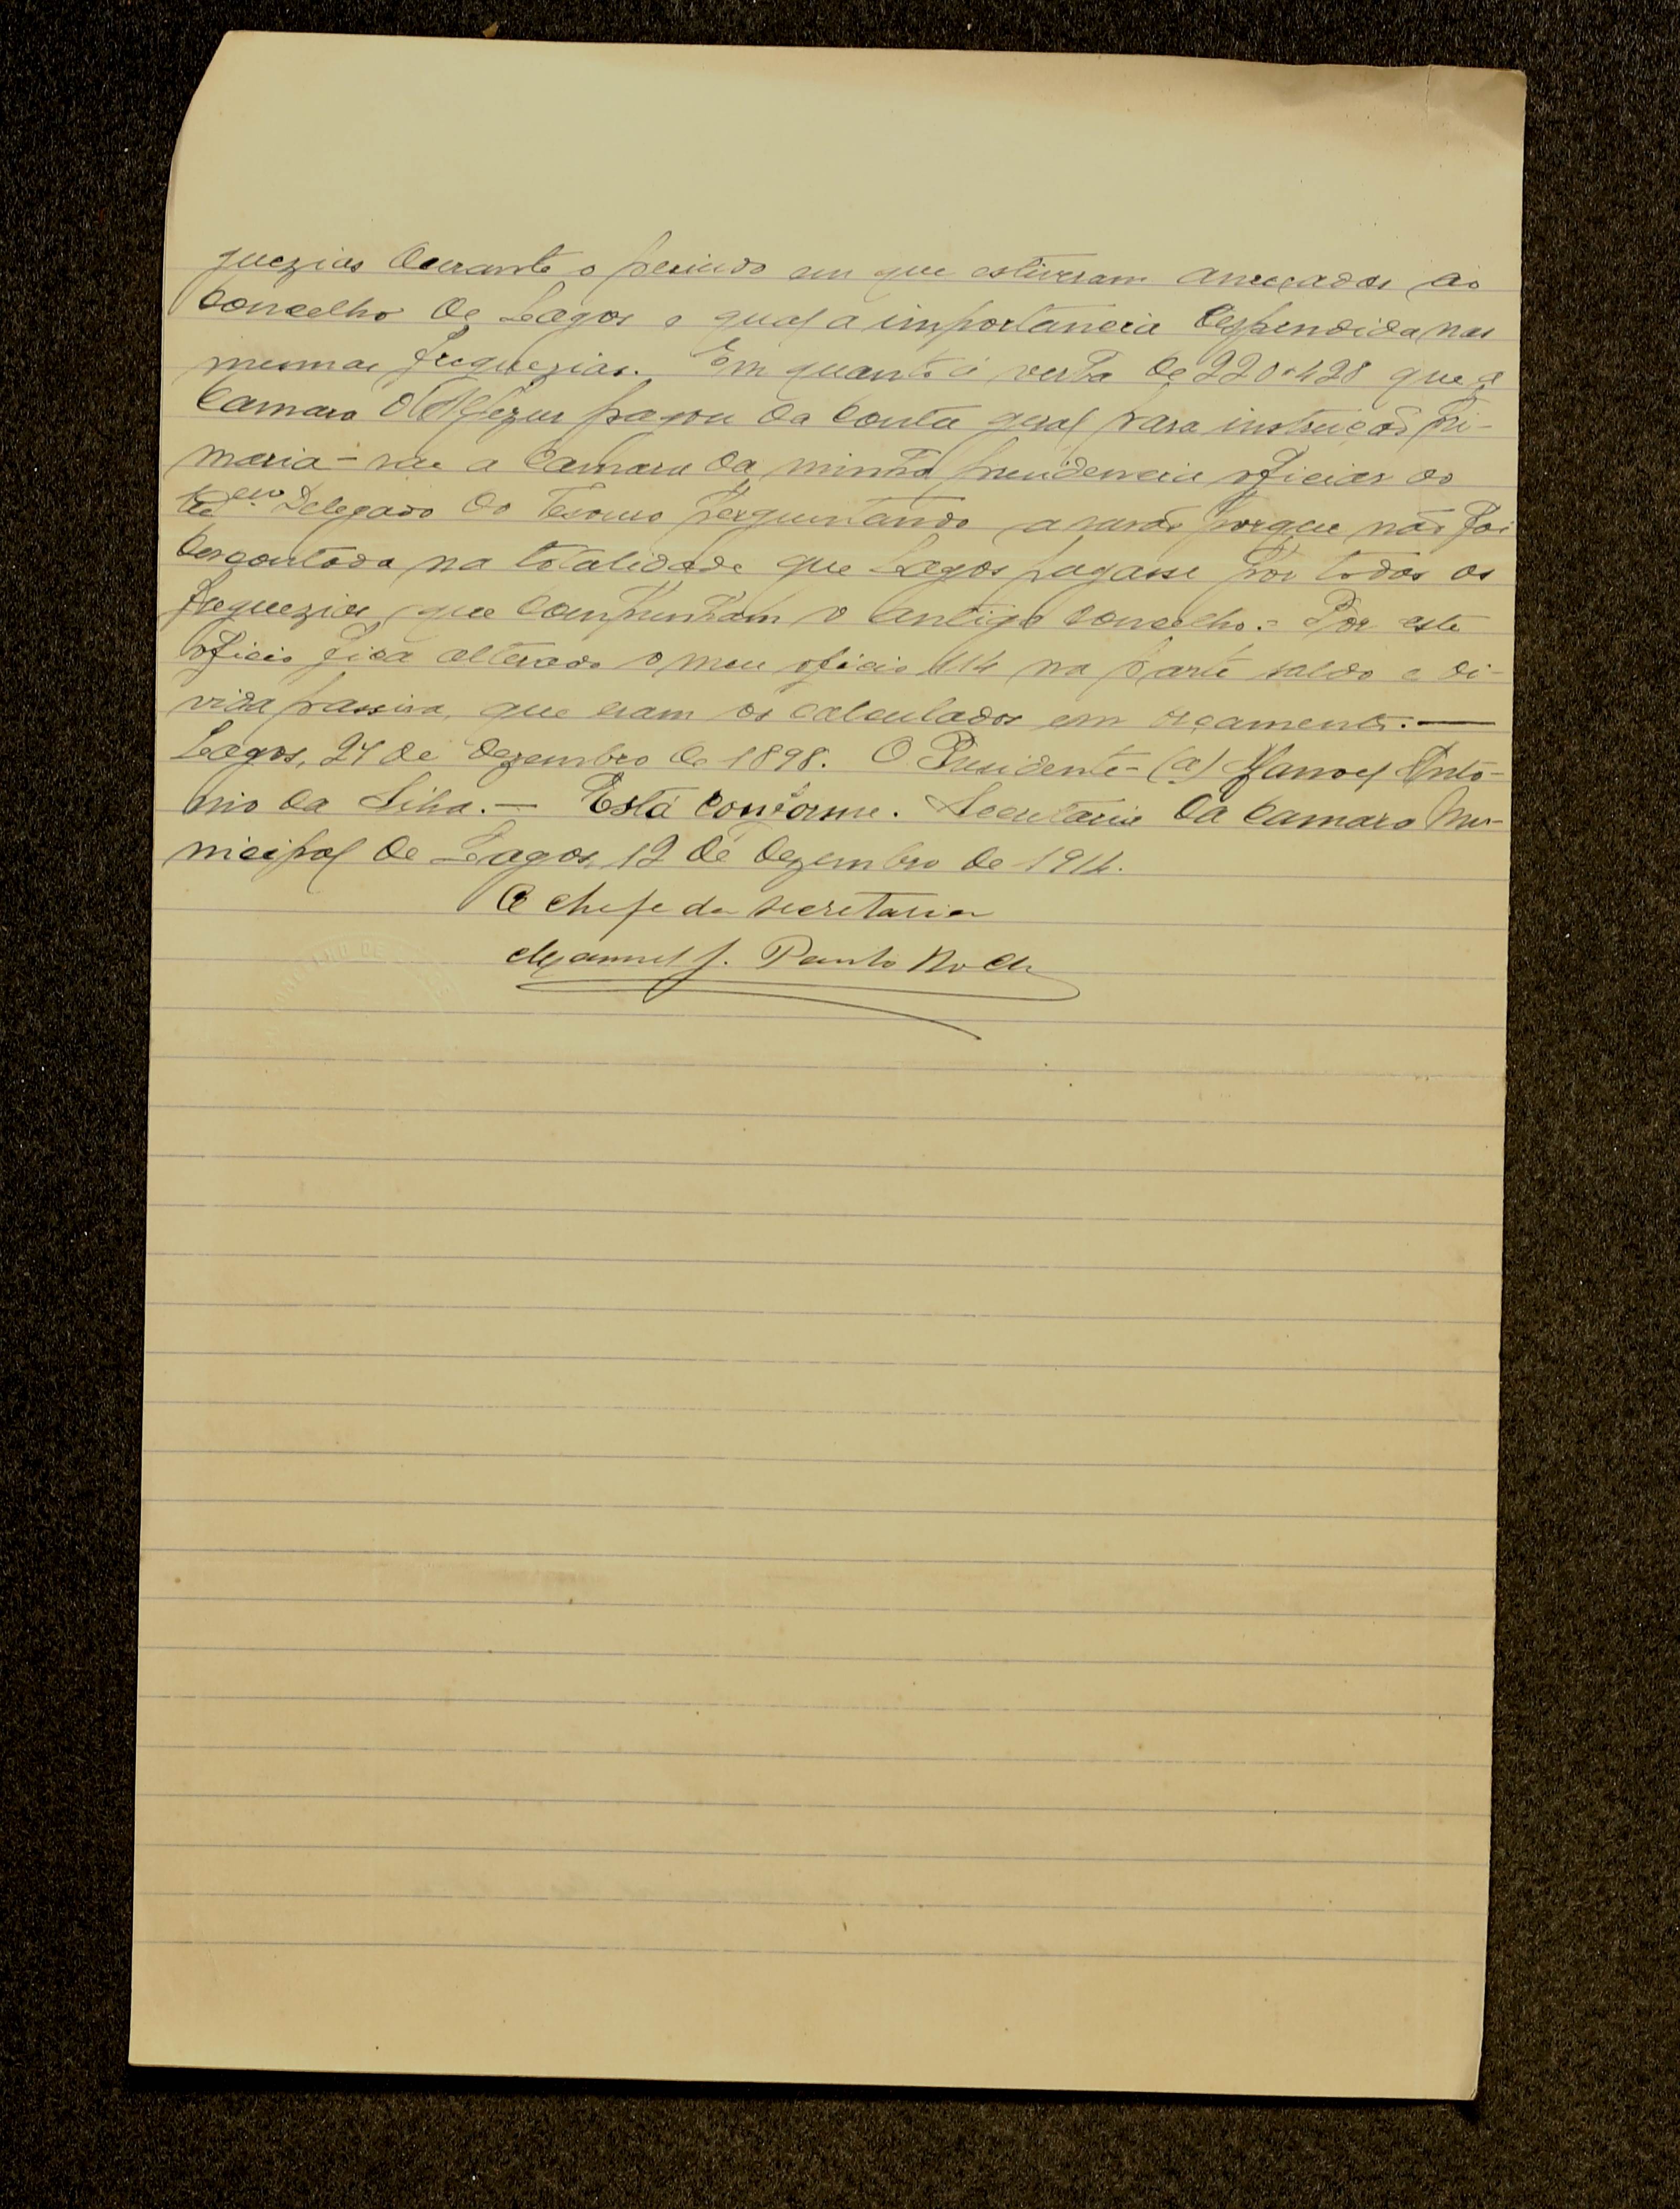 guezias durante o periodo em que estiveram anexadas ao
concelho de Lagos e qual a importancia despendida nas
mesmas freguezias. Em quanto á verba de 220$428 que a
Camara d'Aljezur pagou da conta geral para instrucão pri-
maria - vae a Camara da minha presidencia oficiar ao
Delegado do Tesouro perguntando a rasão porque não foi
descontada na totalidade que Lagos pagasse por todas as
freguezias que compunham o antigo concelho. = Por este
oficio fica alterado o meu oficio 114 na parte saldo e di-
vida passiva, que eram os calculados em orçamento. —
Lagos, 27 de Dezembro de 1898. O Presidente - (a) Manoel Antó-
nio da Silva. — Está conforme. Secretaria da Camara Mu-
nicipal de Lagos, 12 de Dezembro de 1914.
O chefe da secretaria
Manuel J. Paulo